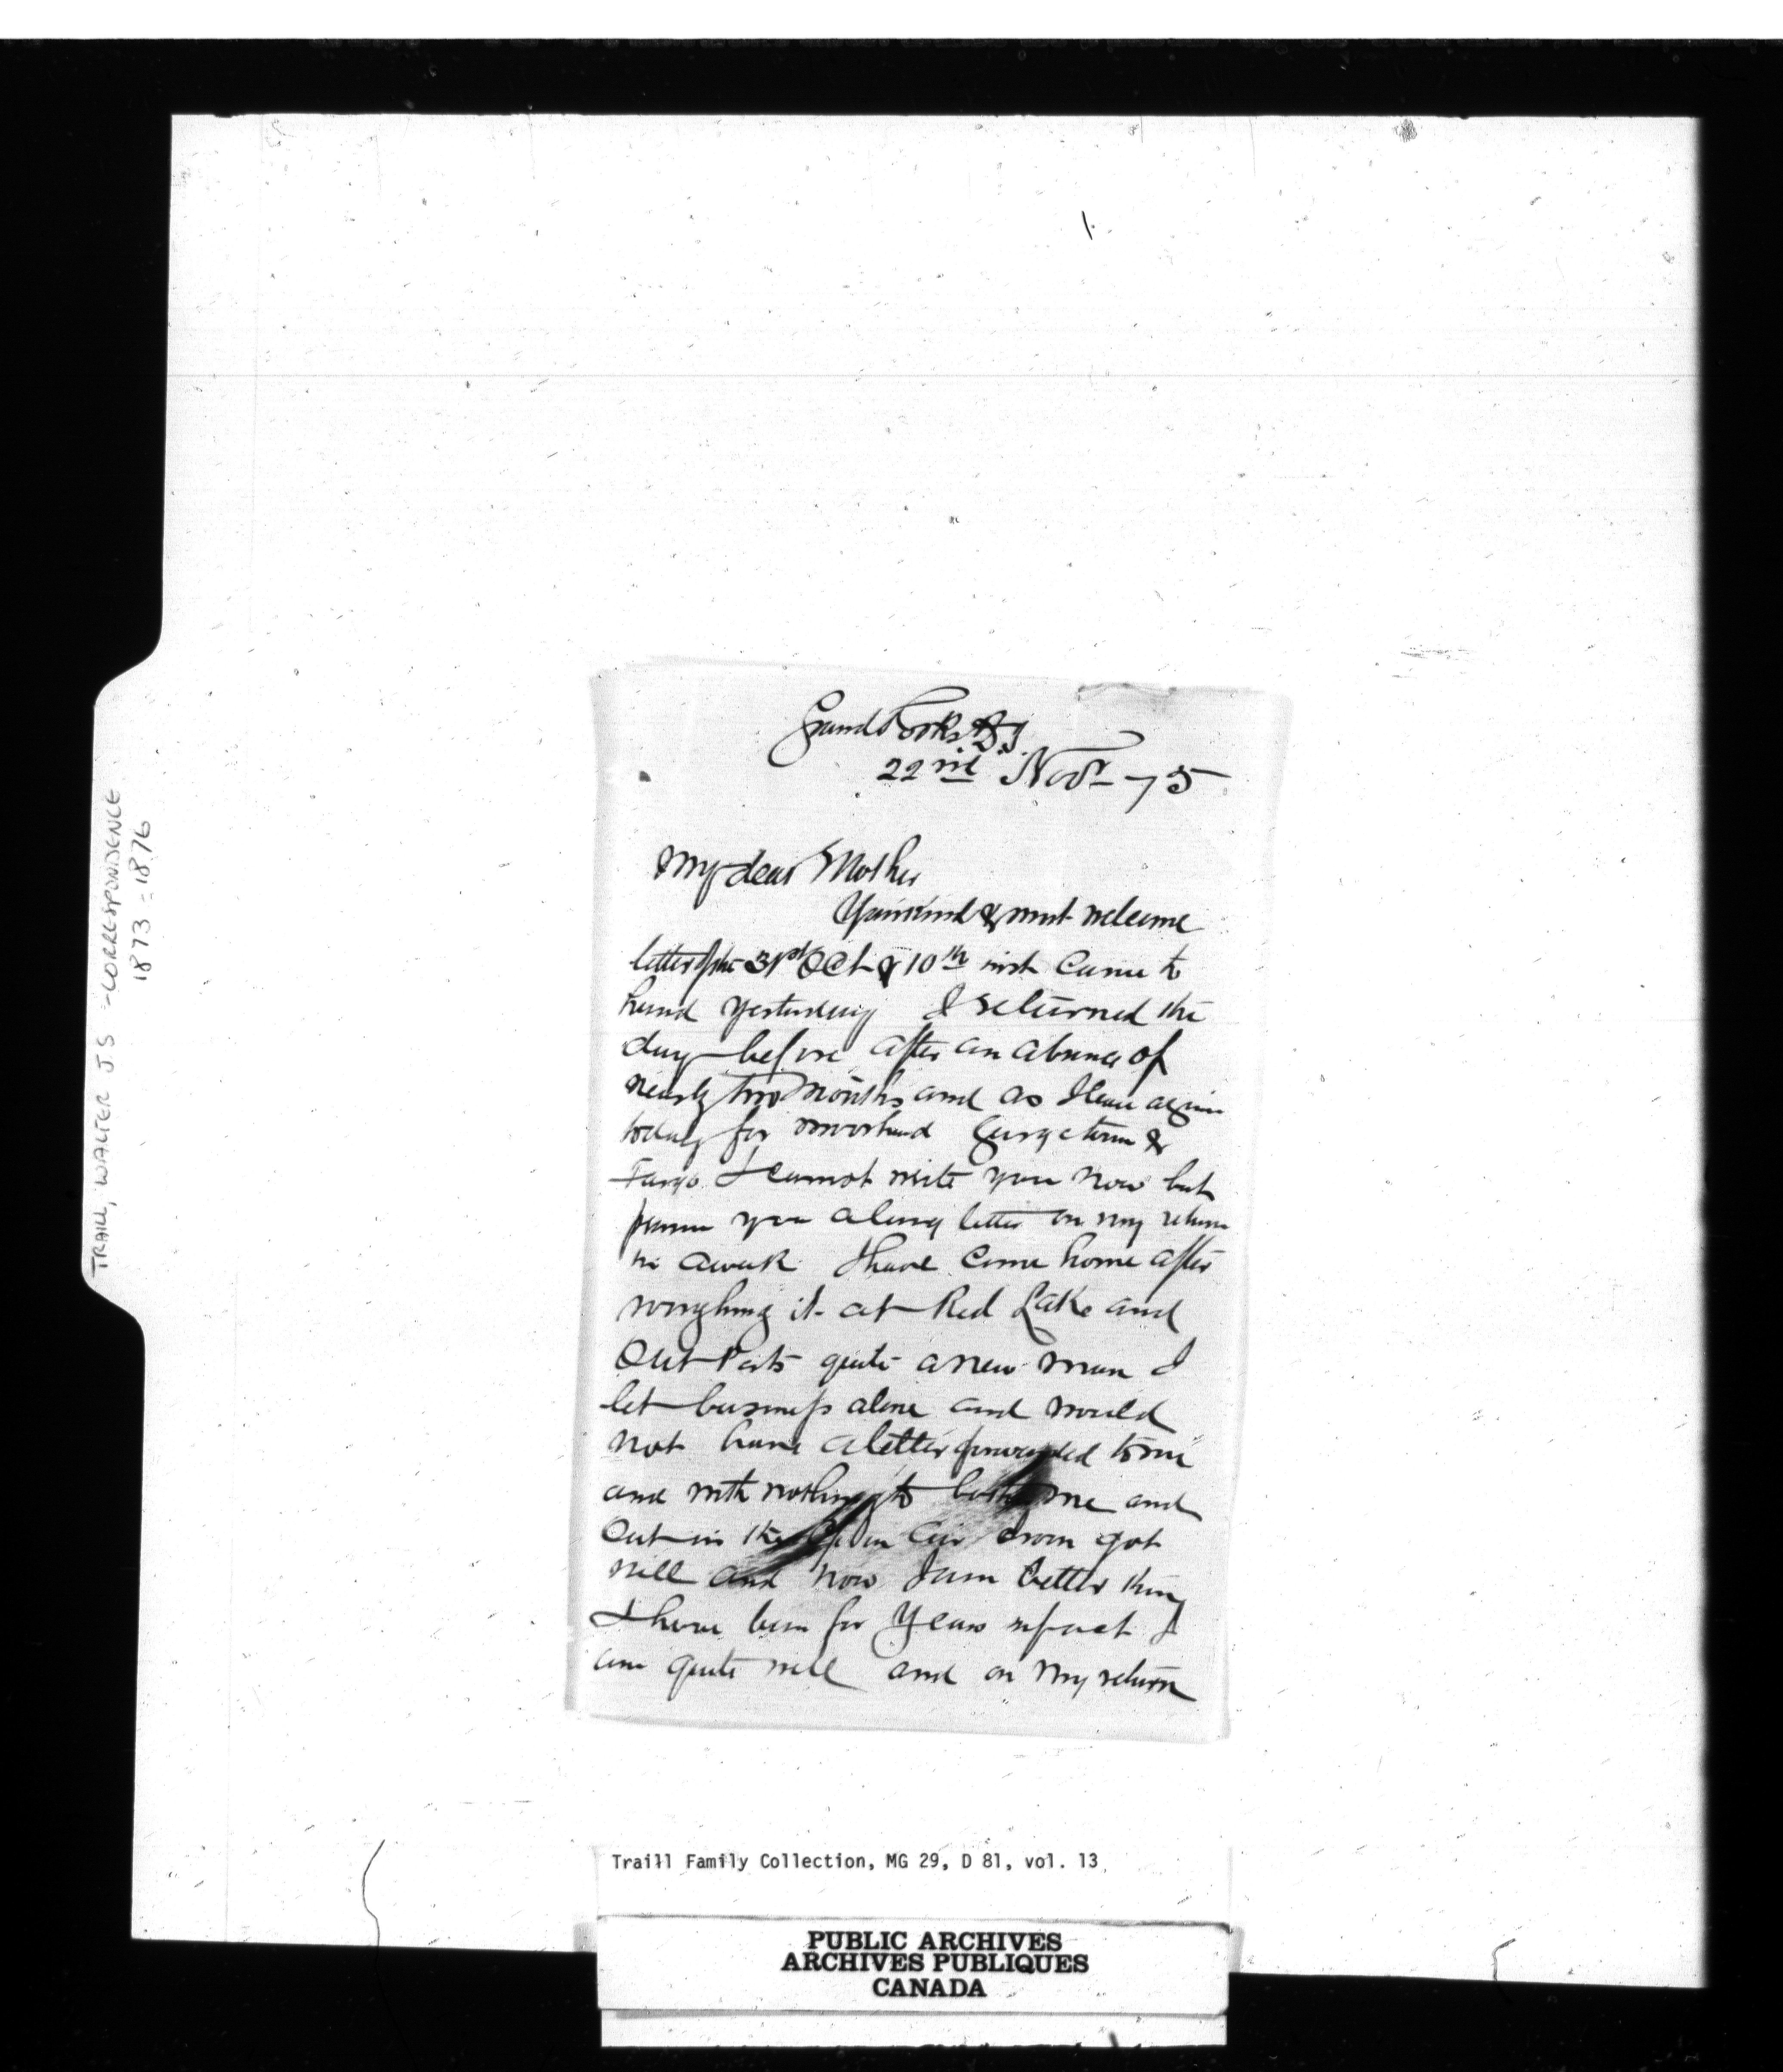 TRAILL, WALTER JS - CORRESPONDENCE
1873-1876
Grand Forks D.T.
22nd Novr - 75
My dear Mother
Your kind & most welcome
letters of the 31st Oct & 10th inst Came to
hand yesterday I returned the
day before after an absence of
nearly two months and as I leave again
today for Moorhead Georgetown &
Fargo I cannot write you now but
promise you a long letter on my return
in a week I have come home after
roughing it at Red Lake and
Out Posts quite a new man I
let business alone and would
not have a letter forwarded to me
and with nothing to bother me and
Out in the Open Air I soon got
well and now I am better than
I have been for Years in fact I
am quite well and on my return
Traill Family Collection, MG 29, D 81, vol. 13
PUBLIC ARCHIVES
ARCHIVES PUBLIQUES
CANADA